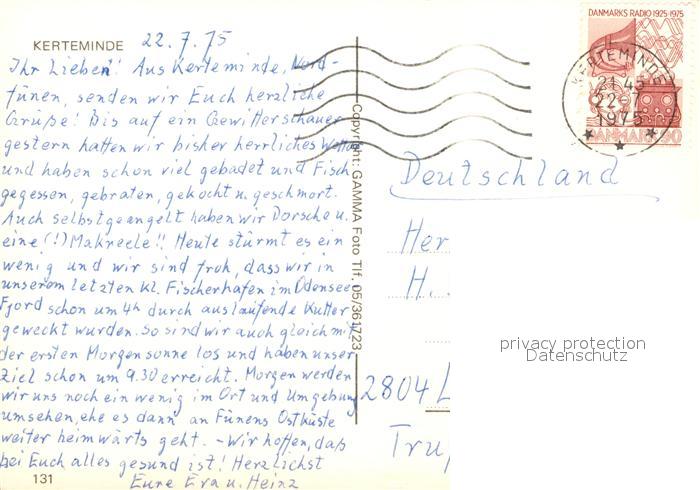 KERTEMINDE 22.7.75
Ihr Lieben! Aus Kerteminde, Nord-
fünen, senden wir Euch herzliche
Grüße! Bis auf ein Gewitterschauer
gestern hatten wir bisher herrliches Wetter
und haben schon viel gebadet und Fisch
gegessen, gebraten, gekocht u. geschmort.
Auch selbstgeangelt haben wir Dorsche u.
eine (!) Makreele!! Heute stürmt es ein
wenig und wir sind froh, dass wir in
unserem letzten kl. Fischerhafen im Odensee
Fjord schon um 4h durch auslaufende Kutter
geweckt wurden. So sind wir auch gleich mit
der ersten Morgensonne los und haben unser
Ziel schon um 9.30 erreicht. Morgen werden
wir uns noch ein wenig im Ort und Umgebung
umsehen, ehe es dann an Fünens Ostküste
weiter heimwärts geht. - Wir hoffen, daß
bei Euch alles gesund ist! Herzlichst
Eure Eva u. Heinz
131
Copyright: GAMMA Foto Tlf. 05/361723
DANMARKS RADIO 1925-1975
DANMARK 90
KERTEMINDE
21 45
22 - 7
1975
Deutschland
Her
H.
2804 L
Tru
privacy protection
Datenschutz